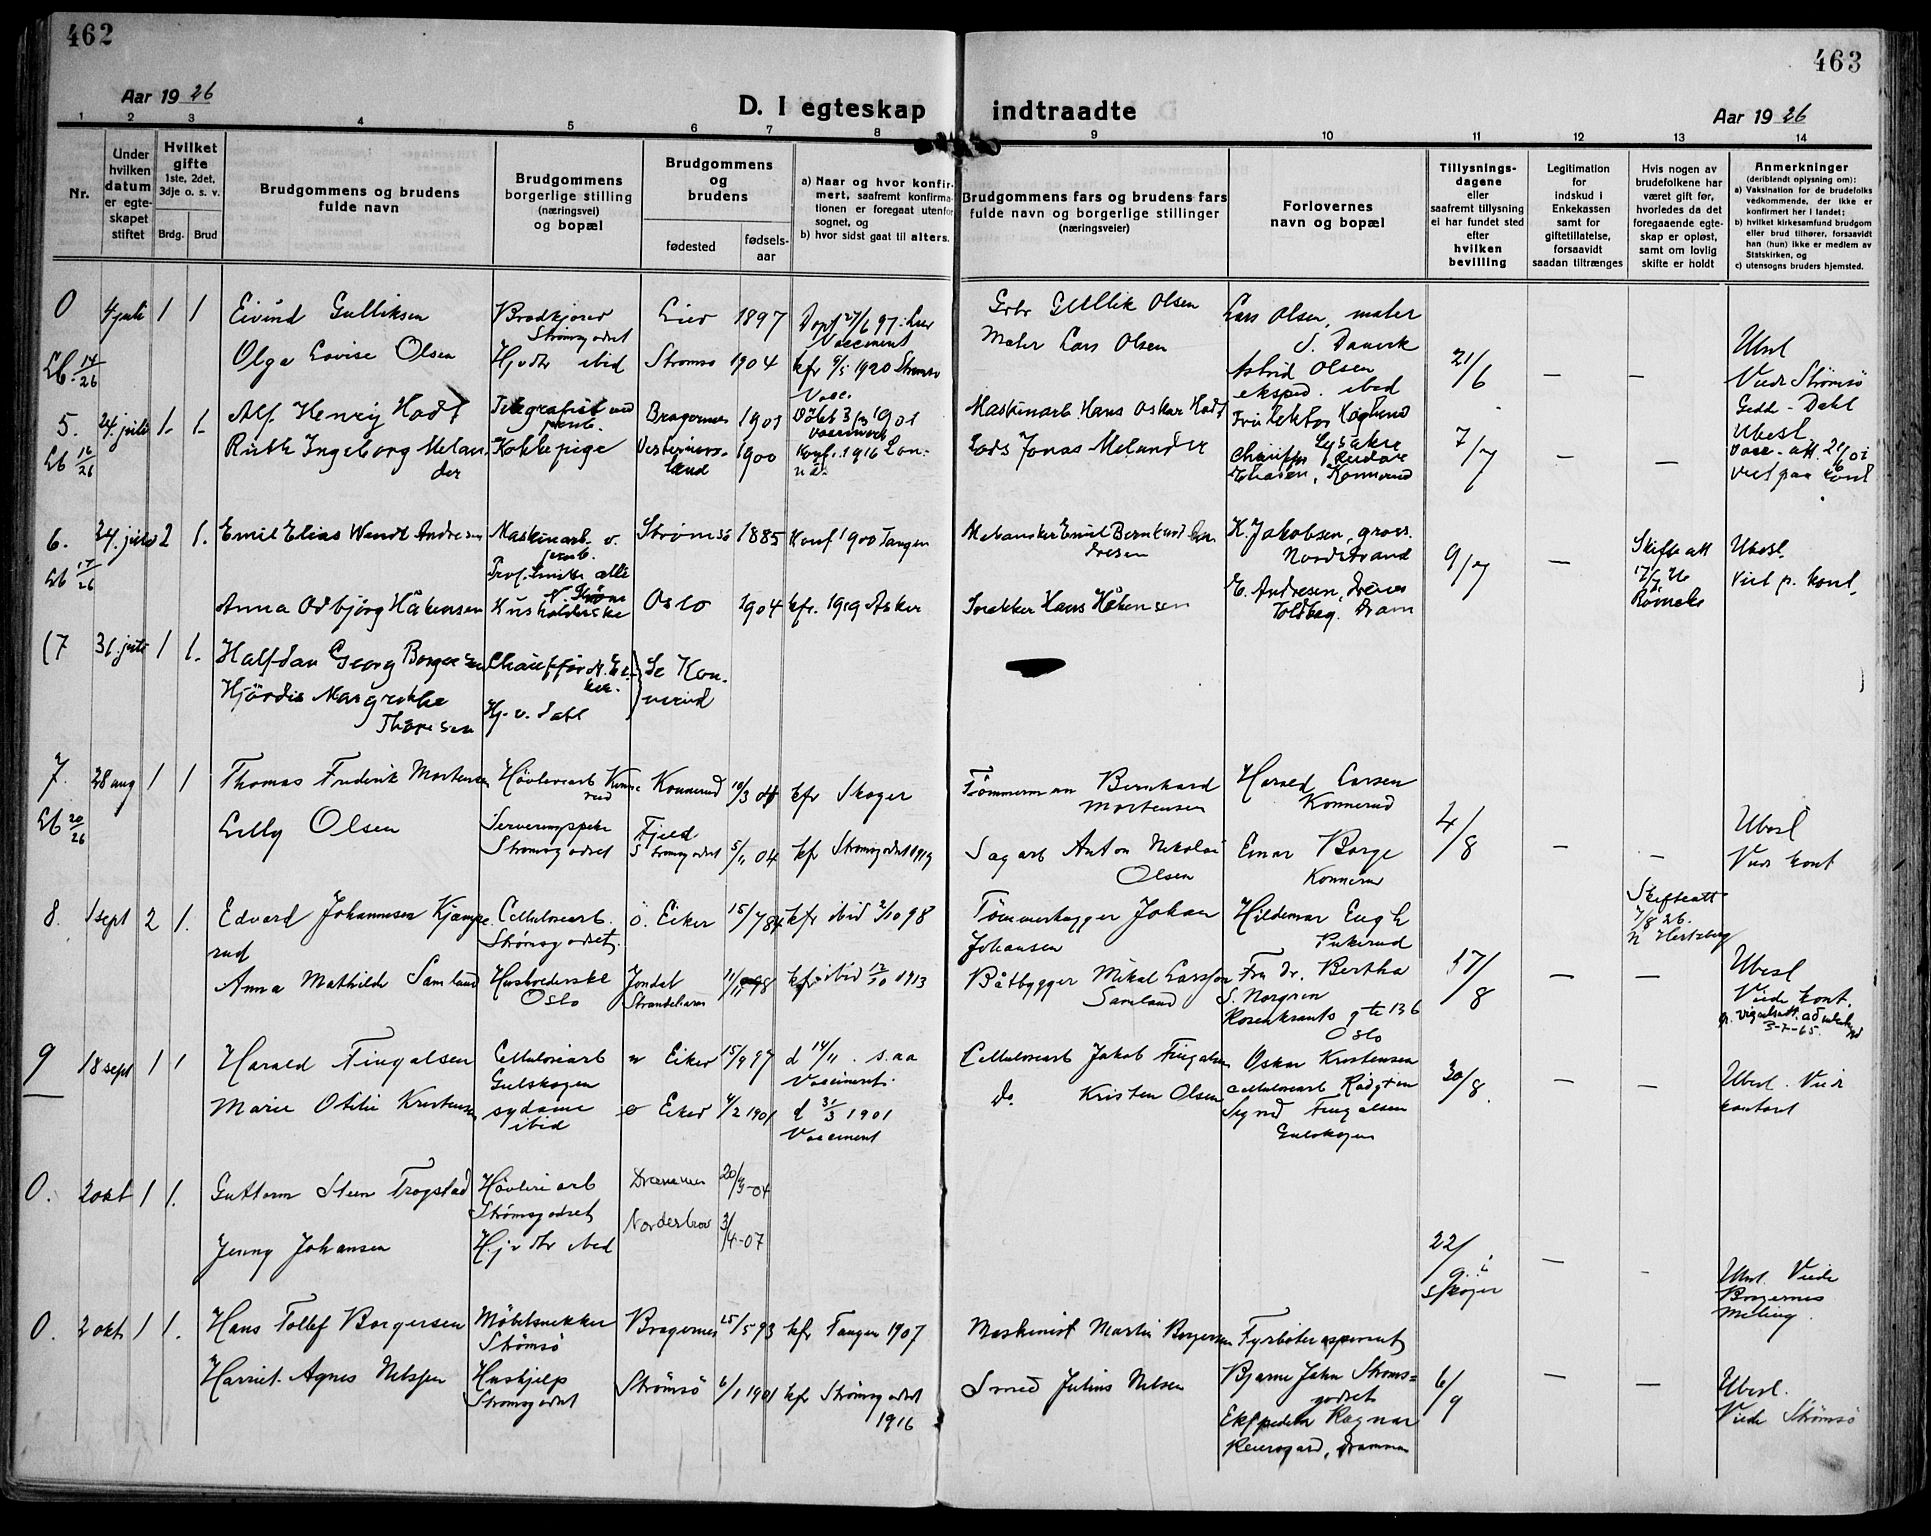 462
463
Aar 19 26
D. I egteskap indtraadte
Aar 19 26
1 2 3 4 5 6 7 8 9 10 11 12 13 14
Nr.
Under
hvilken
datum
er egte-
skapet
stiftet
Hvilket
gifte
1ste, 2det,
3dje o. s. v.
Brdg. Brud
Brudgommens og brudens
fulde navn
Brudgommens
borgerlige stilling
(næringsvei)
og bopæl
Brudgommens
og
brudens
fødested
fødsels-
aar
a) Naar og hvor konfir-
mert, saafremt konfirma-
tionen er foregaat utenfor
sognet, og
b) hvor sidst gaat til alters.
Brudgommens fars og brudens fars
fulde navn og borgerlige stillinger
(næringsveier)
Forlovernes
navn og bopæl
Tillysnings-
dagene
eller
saafremt tillysning
ei har fundet sted
efter
hvilken
bevilling
Legitimation
for
indskud i
Enkekassen
samt for
giftetillatelse,
forsaavidt
saadan tiltrænges
Hvis nogen av
brudefolkene har
været gift før,
hvorledes da det
foregaaende egte-
skap er opløst,
samt om lovlig
skifte er holdt
Anmerkninger
(deriblendt oplysning om):
a) Vaksination for de brudefolks
vedkommende, der ikke er
konfirmert her i landet;
b) hvilket kirkesamfund brudgom
eller brud tilhører, forsaavidt
han (hun) ikke er medlem av
Statskirken, og
c) utensogns bruders hjemsted.
0 4 juli 1 1 Eivind Gulliksen
Strømsgodset
Lier 1897
Vaccinert
Gbr Gullik Olsen
Lars Olsen, maler
Lb. 14/26
Olga Lovise Olsen
Hj v dtr ibid
Strømsø 1904
kfr 9/5 1920 Strømsø
Maler Lars Olsen
Astrid Olsen
eksped. ibid
21/6 — —
Ubesl
Viede Strømsø
5. 24. juli 1. 1. Alf Henry Hodt
Telegrafist ved
jernb.
Bragernes 1901
Døbt 3/3 1901
vaccinert
Maskinarb Hans Oskar Hodt
Lysaker
Lb 16/26
Ruth Ingeborg Melan-
der
Kokkepige
Vesternorr-
land
1900
Konf. 1916
Jonas Melander
Konnerud
7/7 — —
Ubesl
6. 24. juli 2 1. Emil Elias Wendt Andresen
Maskinarb. v.
jernb.
Strømsø 1885 Konf 1900 Tangen
Mekaniker Emil Bernhard An-
dresen
K. Jakobsen, gross.
Nordstrand
Lb 17/26
9/7 —
Skifteatt
17/7 26
Ubesl.
Viet p. kont.
Anna Odbjørg Håkensen
Husholderske
Oslo 1904 kfr. 1919 Asker
Snekker Hans Håkensen
E. Andresen,
Toldbag. Dram
(7 31. juli 1 1. Halfdan Georg Borgersen
Chauffør N. Ei-
ker.
Se Kon-
nerud
Hjördis Margrethe
Thoresen
Hj. v. Dahl
7. 28 aug 1 1 Thomas Fredrik Mortensen
Høvleriarb Konne-
rud
Konnerud 10/3 04 kfr Skoger
Tømmermann Bernhard
Mortensen
Harald Larsen
Konnerud
Lb 20/26
Lilly Olsen
Serveringspike
Strømsgodset
Fjeld
Strømsgodset
5/11 04
kfr Strømsgodset 1919
Sagarb Anton Nikolai
Olsen
Einar Borge
Konnerud
4/8 — —
Ubesl
Viede kont
8. 1 sept 2 1. Edvard Johannesen Kjempe-
rud
Cellulosearb.
Strømsgodset.
ö. Eiker 15/7 84 kfr ibid 2/10 98
Tømmerhugger Johan
Johansen
Hildemar Engh
Skifteatt
7/8 26.
N Hertzberg
Anna Mathilde Samland
Husholderske
Oslo
Jondal
Strandebarm
kfr ibid 12/10 1913
Båtbygger Mikal Larsson
Samland
Fru Dr. Bertha
S. Norgren
Rosenkrantz gte 136
Oslo
17/8 — —
Ubesl
Viede kont.
3-7-65.
9 18 sept 1 1 Harald Fingalsen
Cellulosearb
Gulskogen
n Eiker 15/9 97
d 14/11 . s.aa
Vaccinert.
Cellulosearb Jakob Fingalsen
Oskar Kristensen
cellulosearb
30/8. — —
Ubesl. Viede
kontoret
Marie Otilie Kristensen
sydame
ibid
ø Eiker 4/2 1901
d 31/3 1901
Vaccinert
do Kristen Olsen
Signe Fingalsen
Gulskogen
0. 2 okt 1 1. Guttorm Steen Trogstad
Høvleriarb
Strømsgodset
Drammen 20/9-04
Jenny Johansen
Hj v dtr ibid
Norderhov 3/4-07
22/9 i
Skoger
— -
Ubesl. Viede
Bragernes
0. 2 okt 1 1. Hans Tollef Borgersen
Møbelsnekker
Strømsø
Bragernes 25/5 93 kfr Tangen 1907
Maskinist Martin Borgersen
Fyrbøteraspirant
Harriet Agnes Nilssen
Hushjelp
Strømsgodset
Strømsö 6/1 1901 kfr Strømsgodset
1916
Smed Julius Nilsen
Bjarne Jahn Strøms-
godset
Ekspeditør Ragnar
Drammen
6/9 — —
Ubesl.
Viede Strømsø